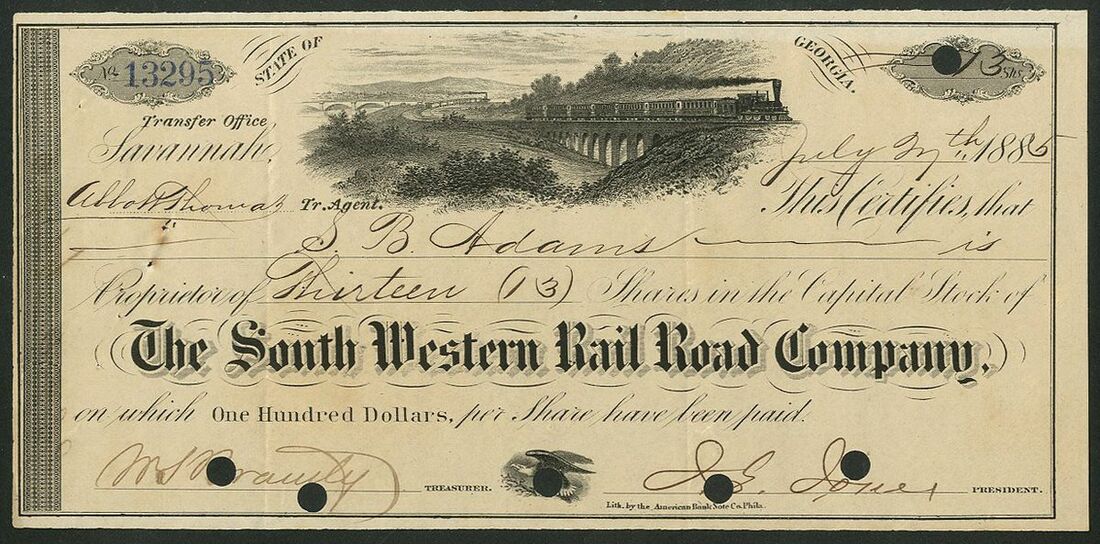 No. 13295
STATE OF GEORGIA.
13 Shs.
Transfer Office
Savannah, July 27th 1885
Tr. Agent. This Certifies, that
S. B. Adams is
Proprietor of Thirteen (13) Shares in the Capital Stock of
The South Western Rail Road Company,
on which One Hundred Dollars, per Share have been paid.
TREASURER. J. E. Jones PRESIDENT.
Lith. by the American Bank Note Co. Phila.